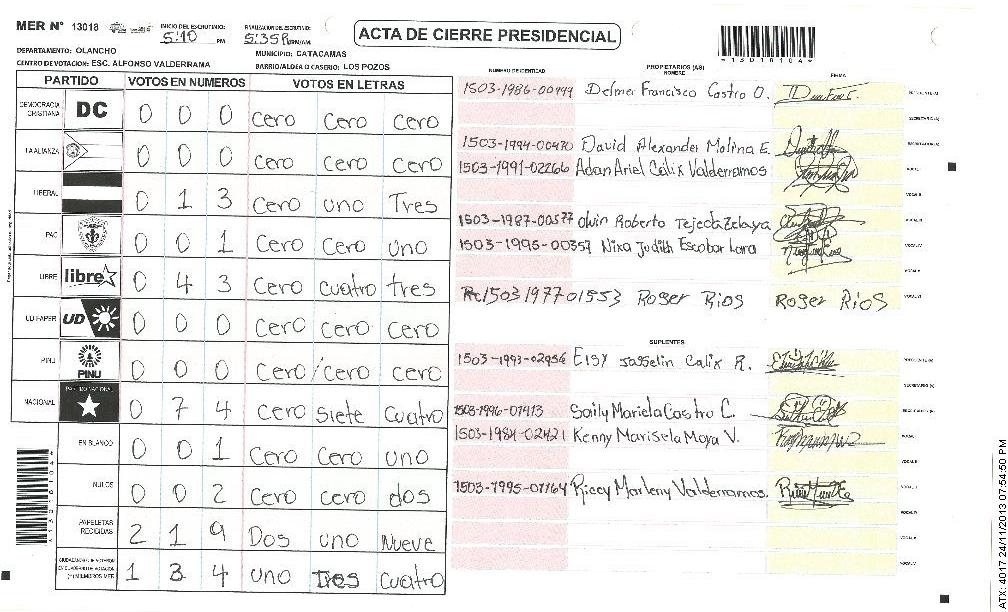 MER N° 13018 INICIO DEL ESCRUTINIO: 5:10 PM FINALIZACION DEL ESCRUTINIO: 5:35 PM/AM
ACTA DE CIERRE PRESIDENCIAL
DEPARTAMENTO: OLANCHO MUNICIPIO: CATACAMAS
CENTRO DE VOTACION: ESC. ALFONSO VALDERRAMA BARRIO/ALDEA O CASERIO: LOS POZOS
PARTIDO VOTOS EN NUMEROS VOTOS EN LETRAS
DEMOCRACIA CRISTIANA DC 0 0 0 Cero Cero Cero
LA ALIANZA 0 0 0 Cero Cero Cero
LIBERAL 0 1 3 Cero uno Tres
PAC 0 0 1 Cero Cero uno
LIBRE libre 0 4 3 Cero cuatro tres
UD FAPER UD 0 0 0 Cero Cero Cero
PINU PINU 0 0 0 Cero/cero cero
NACIONAL PARTIDO NACIONAL 0 7 4 Cero siete cuatro
EN BLANCO 0 0 1 Cero Cero uno
NULOS 0 0 2 Cero cero dos
PAPELETAS RECIBIDAS 2 1 9 Dos uno Nueve
1 3 4 uno Tres cuatro
*13018104*
NUMERO DE IDENTIDAD PROPIETARIOS (AS) NOMBRE FIRMA
1503-1986-00499 Delmer Francisco Castro O.
1503-1994-00470 David Alexander Molina E.
1503-1991-02266 Adan Ariel Calix Valderramos
1503-1987-00577 Olvin Roberto Tejeda Zelaya
1503-1995-00359 Nixa Judith Escobar Lara
1503197701553 Roger Rios Roger Rios
SUPLENTES
1503-1993-02956 Elsy Jasselin Calix R.
1503-1996-01413 Saily Mariela Castro C.
1503-1984-02421 Kenny Marisela Moya V.
1503-1995-01164 Riccy Marleny Valderramos.
ATX: 4017 24/11/2013 07:54:50 PM